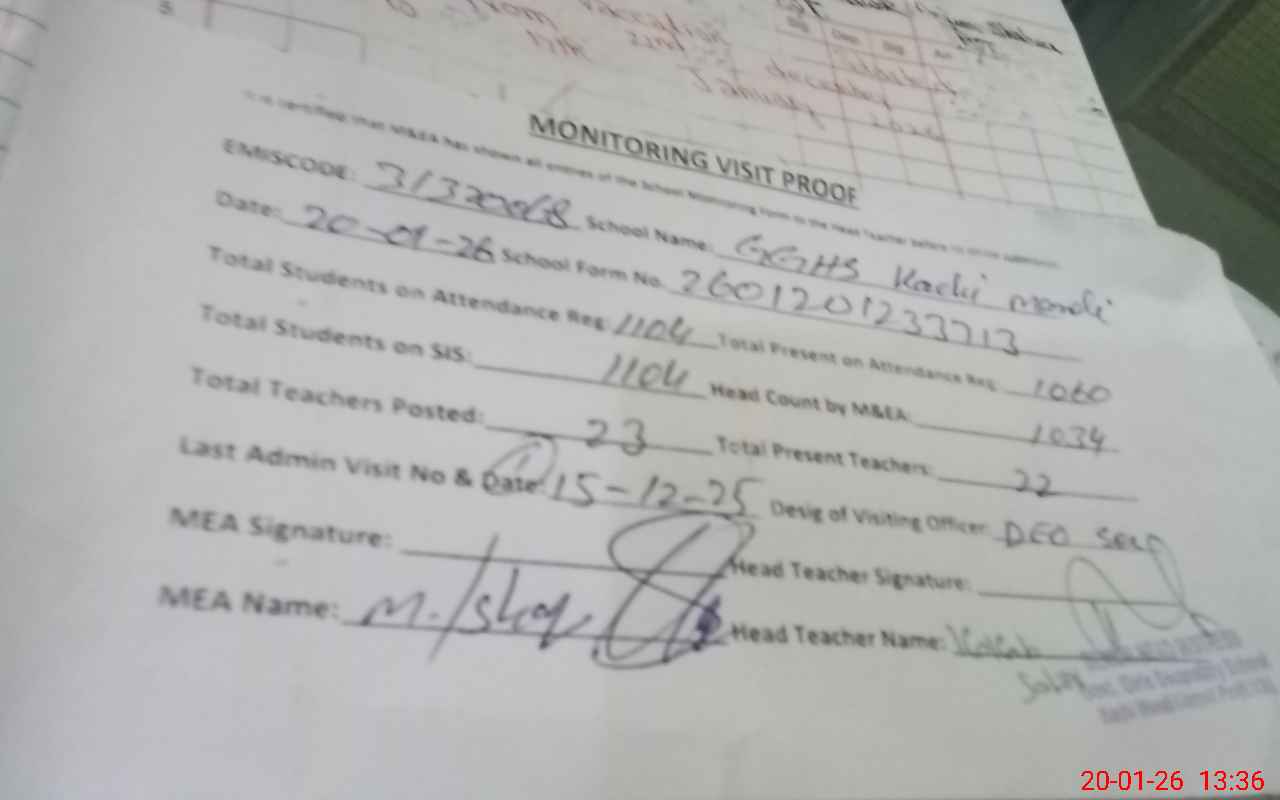 5.
to from vaccation
22nd december
January 2026
MONITORING VISIT PROOF
It is certified that M&EA has shown all entries of the School Monitoring Form to the Head Teacher before its online submission.
EMISCODE: 31320068 School Name: GGHS Kachi mandi
Date: 20-01-26 School Form No. 2601201233713
Total Students on Attendance Reg: 1104 Total Present on Attendance Reg: 1060
Total Students on SIS: 1104 Head Count by M&EA: 1034
Total Teachers Posted: 23 Total Present Teachers: 22
Last Admin Visit No & Date: 1 15-12-25 Desig of Visiting Officer: DEO
MEA Signature: Head Teacher Signature:
MEA Name: M. Ishaq Head Teacher Name:
20-01-26 13:36